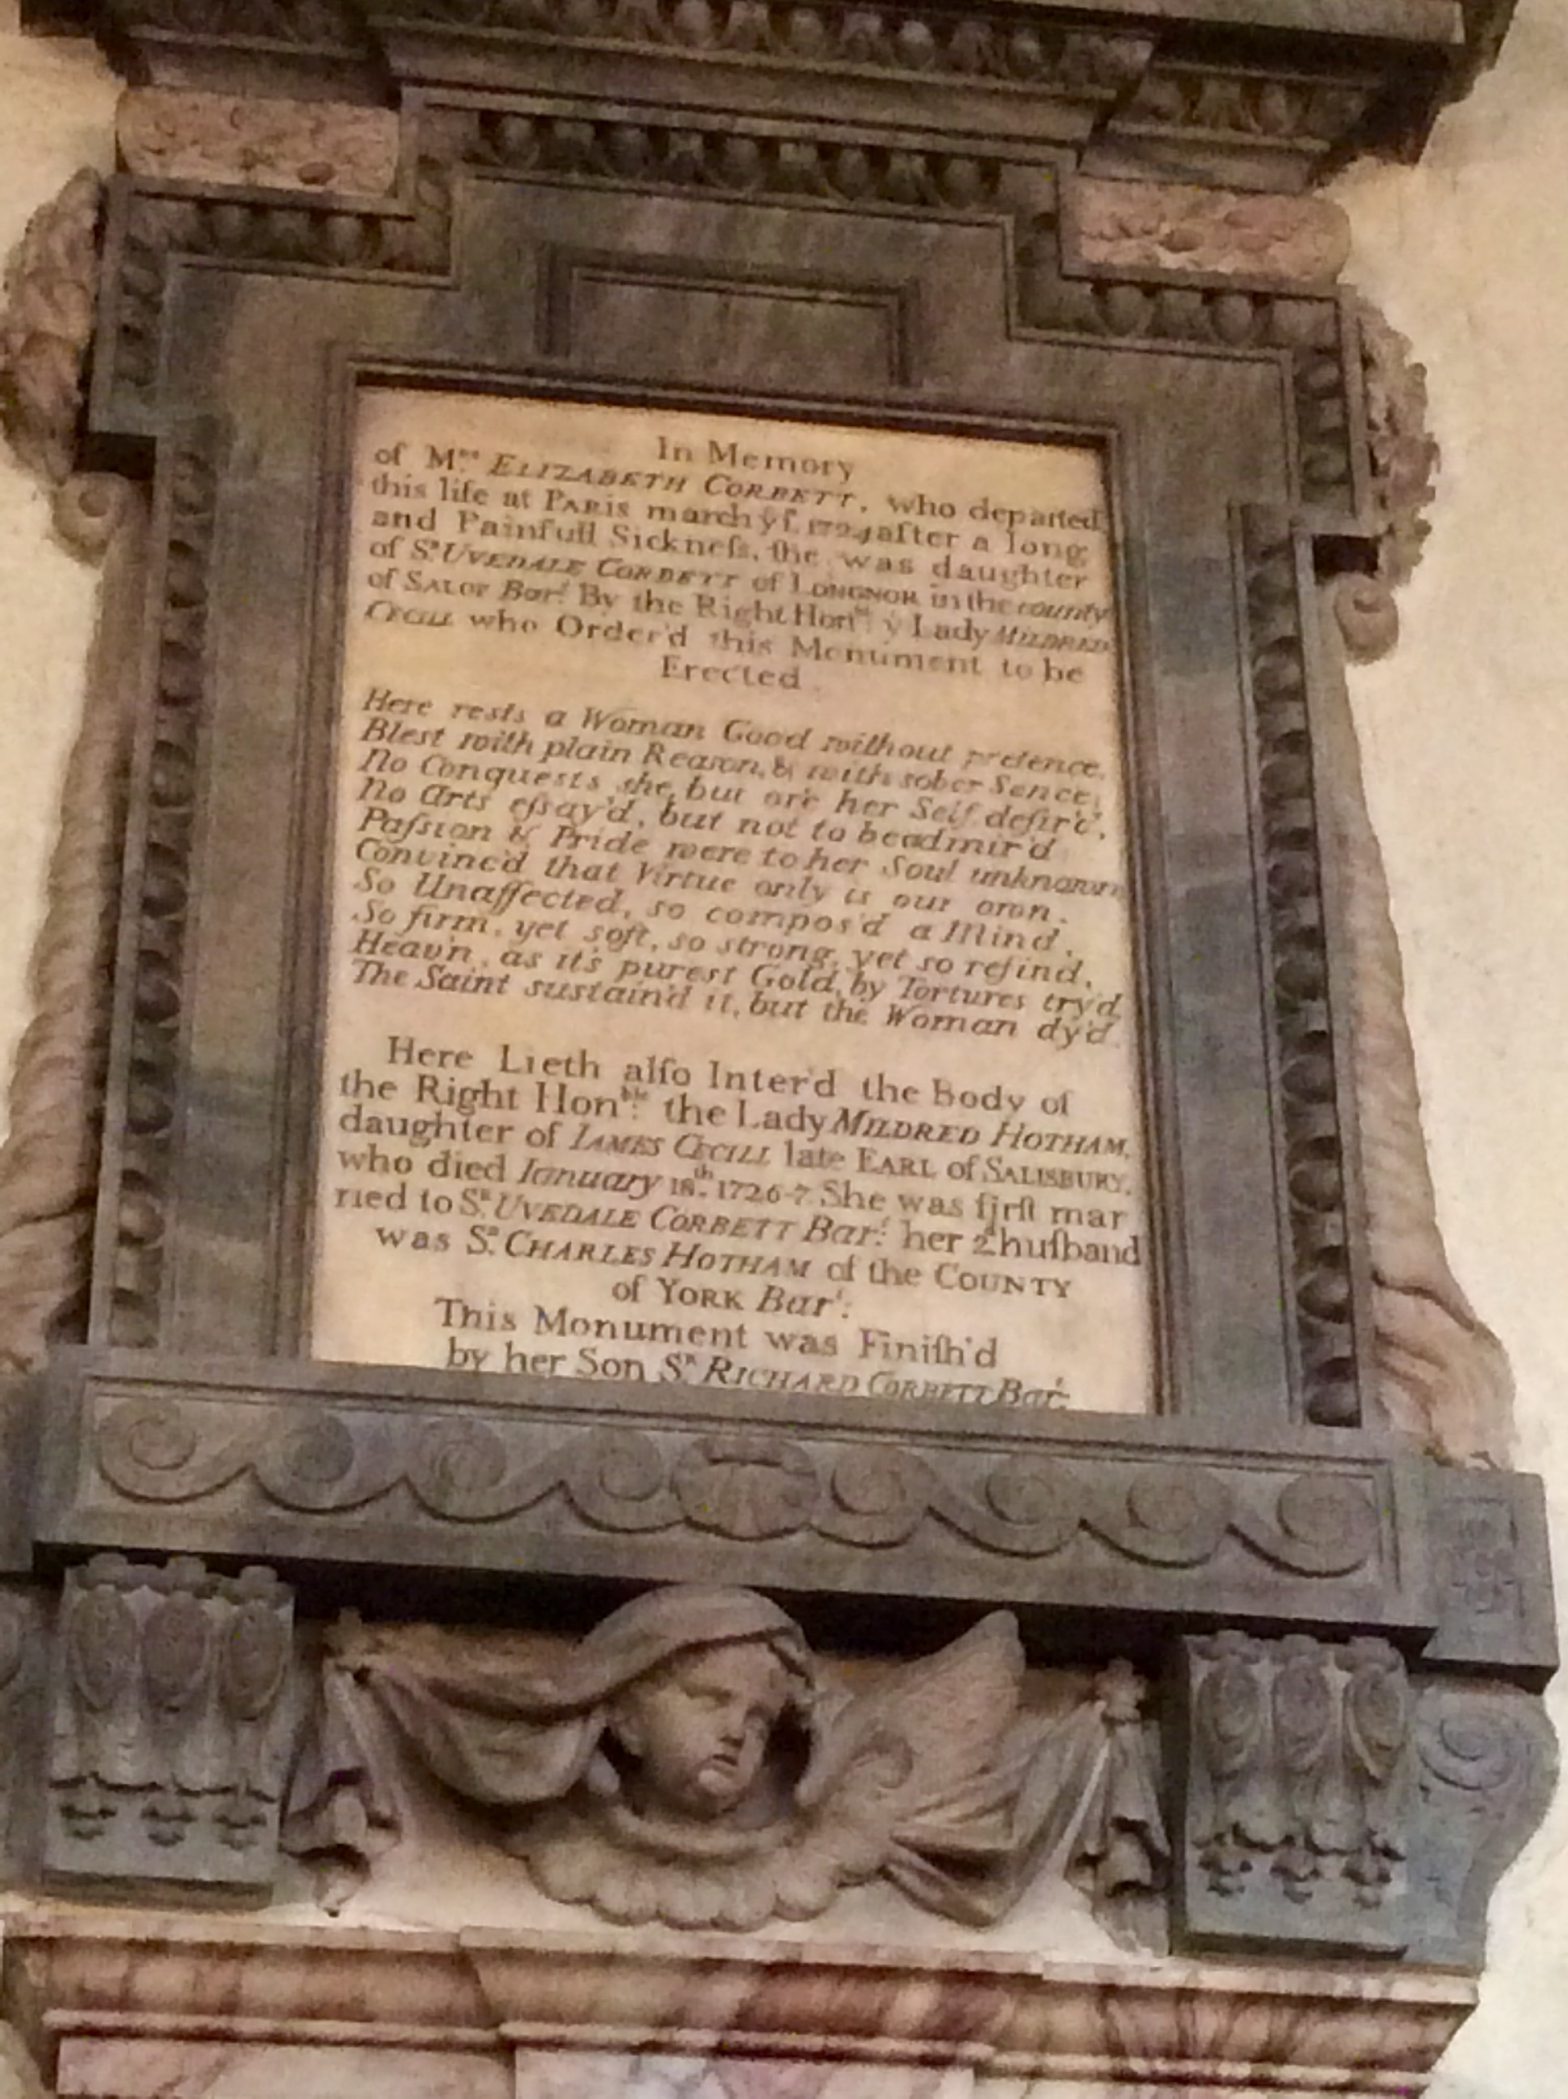 In Memory
of Mrs. ELIZABETH CORBETT, who departed
this life at PARIS march ye 1. 1724 after a long
and Painfull Sickneſs, ſhe was daughter
of Sr. UVEDALE CORBETT of LONGNOR in the county
of SALOP Bart. By the Right Honble. ye Lady MILDRED
CECILL who Order'd this Monument to be
Erected.
Here rests a Woman Good without pretence,
Blest with plain Reason, & with sober Sence;
No Conquests she, but o're her Self deſir'd,
No Arts eſsay'd, but not to be admir'd
Paſsion & Pride were to her Soul unknown
Convinc'd that Virtue only is our own.
So Unaffected, so compos'd a Mind,
So firm, yet soft, so strong, yet so refind,
Heav'n, as it's purest Gold, by Tortures try'd,
The Saint sustain'd it, but the Woman dy'd.
Here Lieth alſo Inter'd the Body of
the Right Honble: the Lady MILDRED HOTHAM,
daughter of IAMES CECILL late EARL of SALISBURY.
who died Ianuary 18th. 1726-7. She was firſt mar
ried to Sr. UVEDALE CORBETT Bart: her 2d huſband
was Sr. CHARLES HOTHAM of the COUNTY
of YORK Bart:
This Monument was Finiſh'd
by her Son Sr. RICHARD CORBETT Bart: